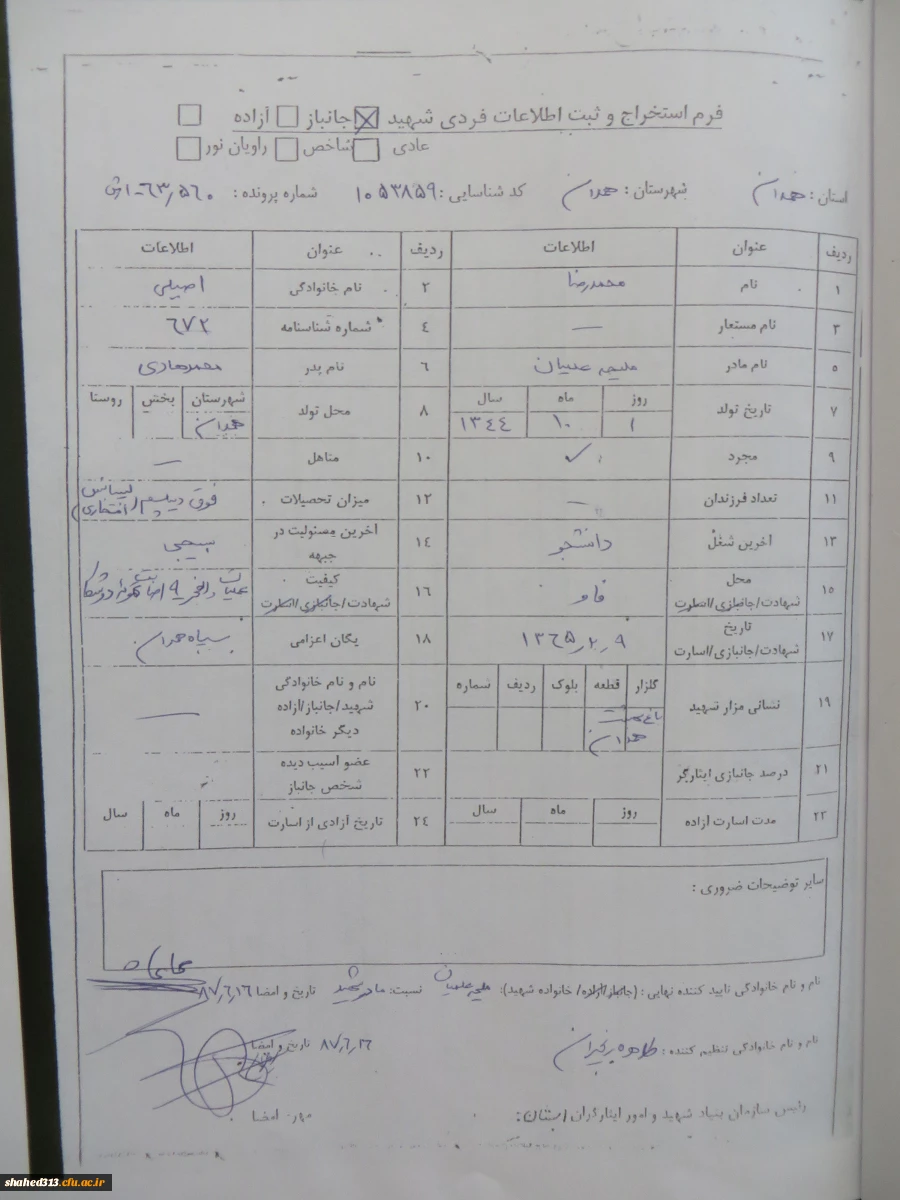 فرم استخراج و ثبت اطلاعات فردی شهید ☒ جانباز ☐ آزاده ☐
عادی ☐ شاخص ☐ راویان نور ☐
استان : همدان شهرستان : همدان کد شناسایی : ۱۰۵۳۸۵۹ شماره پرونده :
ردیف عنوان اطلاعات ردیف عنوان اطلاعات
۱ نام محمدرضا ۲ نام خانوادگی اصیلی
۳ نام مستعار — ٤ شماره شناسنامه ٦٧٢
۵ نام مادر ملیحه علیان ٦ نام پدر محمدهادی
۷ تاریخ تولد روز ماه سال ۸ محل تولد شهرستان بخش روستا
۱ ۱۰ ۱۳٤٤ همدان
۹ مجرد ✓ ۱۰ متاهل —
۱۱ تعداد فرزندان — ۱۲ میزان تحصیلات فوق دیپلم (لیسانس افتخاری)
۱۳ آخرین شغل دانشجو ۱٤ آخرین مسئولیت در جبهه بسیجی
۱۵ محل شهادت/جانبازی/اسارت فاو ۱٦ کیفیت شهادت/جانبازی/اسارت عملیات والفجر
۱۷ تاریخ شهادت/جانبازی/اسارت ۱۳٦۵٫۲٫۹ ۱۸ یگان اعزامی سپاه همدان
۱۹ نشانی مزار شهید گلزار قطعه بلوک ردیف شماره ۲۰ نام و نام خانوادگی شهید/جانباز/آزاده دیگر خانواده —
باغ بهشت همدان
۲۱ درصد جانبازی ایثارگر ۲۲ عضو آسیب دیده شخص جانباز
۲۳ مدت اسارت آزاده روز ماه سال ۲٤ تاریخ آزادی از اسارت روز ماه سال
سایر توضیحات ضروری :
نام و نام خانوادگی تایید کننده نهایی : (جانباز/آزاده/ خانواده شهید): ملیحه علیان نسبت: مادر شهید تاریخ و امضا ۸۷٫٦٫۱٦
نام و نام خانوادگی تنظیم کننده : طاهره تاریخ و امضا
رئیس سازمان بنیاد شهید و امور ایثارگران استان: مهر- امضا
shahed313.cfu.ac.ir